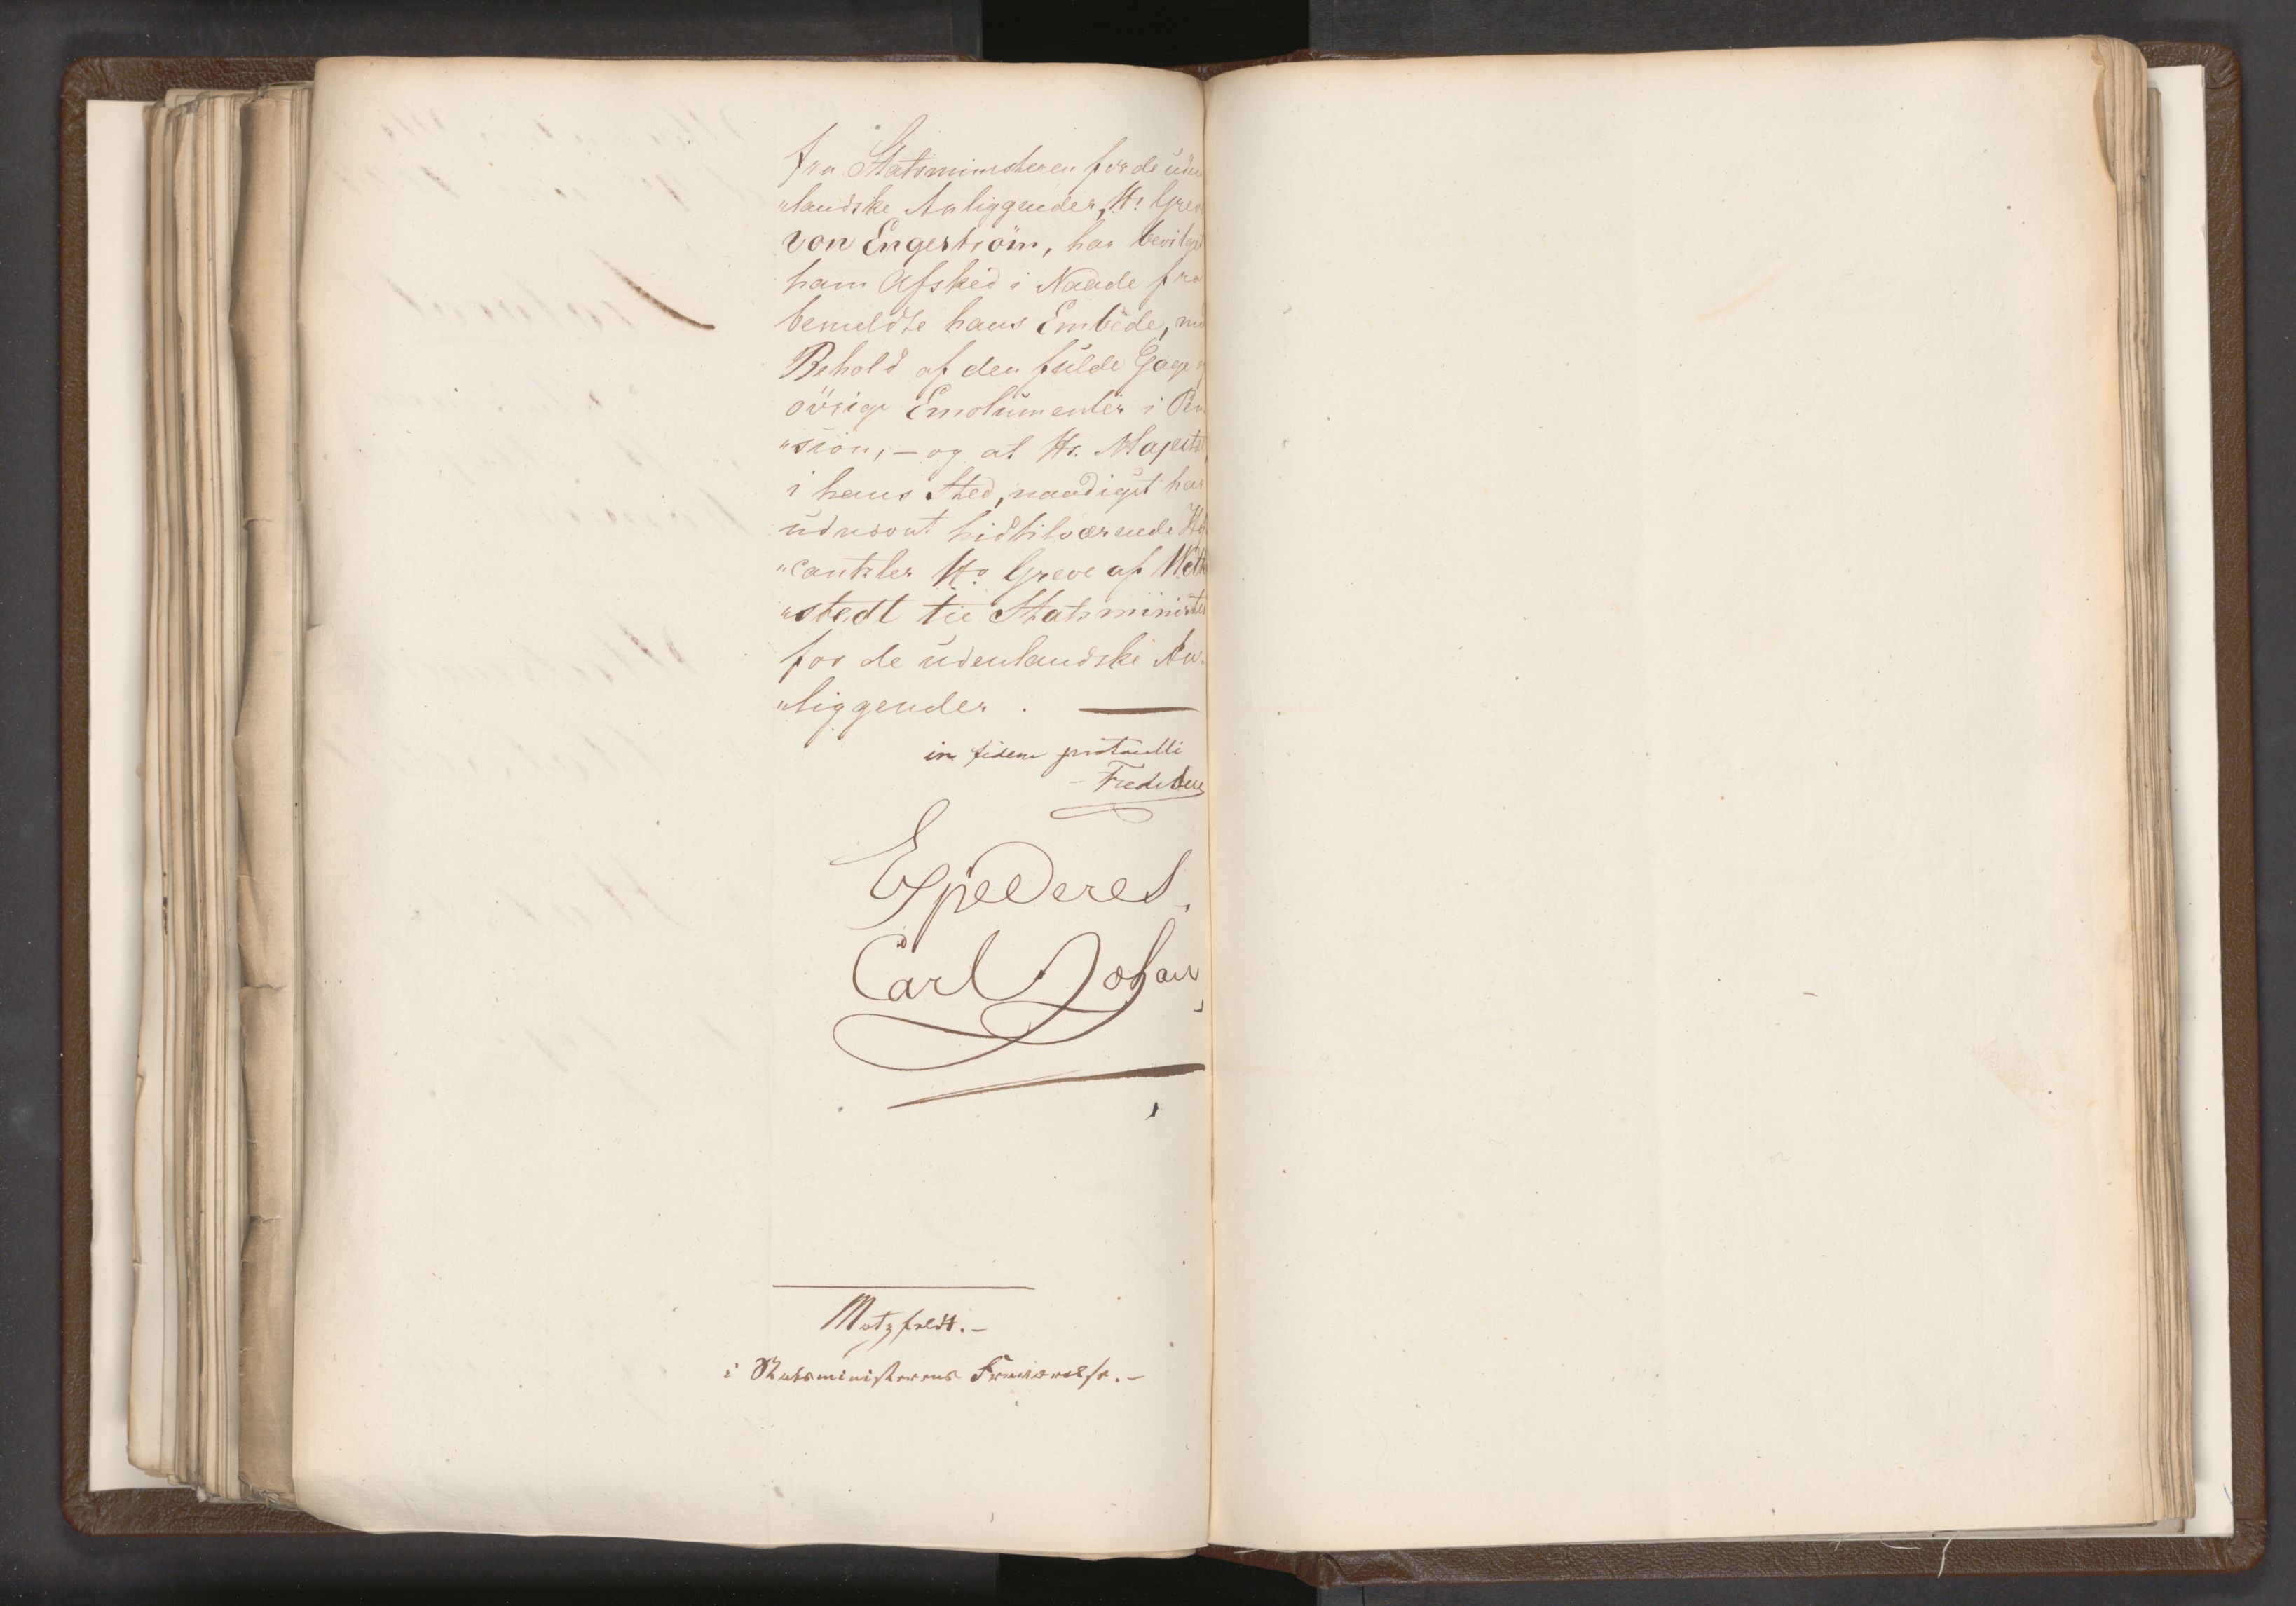 fra Statsministeren for de uden
„landske Anliggender, Hr Greve
von Engerström, har bevilget
ham Afsked i Naade fra
bemeldte hans Embede, med
Behold af den fulde Gage og
övrige Emolumenter i Pen
„sion, – og at Hs. Majestæt,
i hans Sted, naadigst har
udnævnt hidtilværende Hof
„cantzler Hr Greve af Wetter
„stedt til Statsminister
for de udenlandske An-
„liggender. —
in fidem protocolli
Expederes.
Carl Johan
Motzfeldt. –
i Statsministerens Fraværelse. –